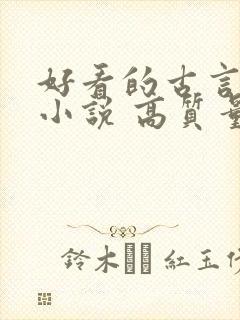 好看的古言
小說 高質量
鈴木 紅玉